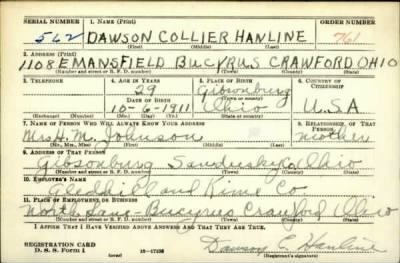 SERIAL NUMBER 1. NAME (Print) ORDER NUMBER
562 DAWSON COLLIER HANLINE 761
(First) (Middle) (Last)
2. ADDRESS (Print)
1108 E MANSFIELD BUCYRUS CRAWFORD OHIO
(Number and street or R. F. D. number) (Town) (County) (State)
3. TELEPHONE 4. AGE IN YEARS 5. PLACE OF BIRTH 6. COUNTRY OF CITIZENSHIP
29 Gibsonburg
DATE OF BIRTH (Town or county)
10-6-1911 Ohio U.S.A
(Exchange) (Number) (Mo.) (Day) (Yr.) (State or country)
7. NAME OF PERSON WHO WILL ALWAYS KNOW YOUR ADDRESS 8. RELATIONSHIP OF THAT PERSON
Mrs H. M. Johnson mother
(Mr., Mrs., Miss) (First) (Middle) (Last)
9. ADDRESS OF THAT PERSON
Gibsonburg Sandusky Co Ohio
(Number and street or R. F. D. number) (Town) (County) (State)
10. EMPLOYER'S NAME
and Kime Co.
11. PLACE OF EMPLOYMENT OR BUSINESS
North San- Bucyrus Crawford Ohio
(Number and street or R. F. D. number) (Town) (County) (State)
I AFFIRM THAT I HAVE VERIFIED ABOVE ANSWERS AND THAT THEY ARE TRUE.
REGISTRATION CARD
D. S. S. Form 1 (over) 16-17105 Dawson C. Hanline
(Registrant's signature)